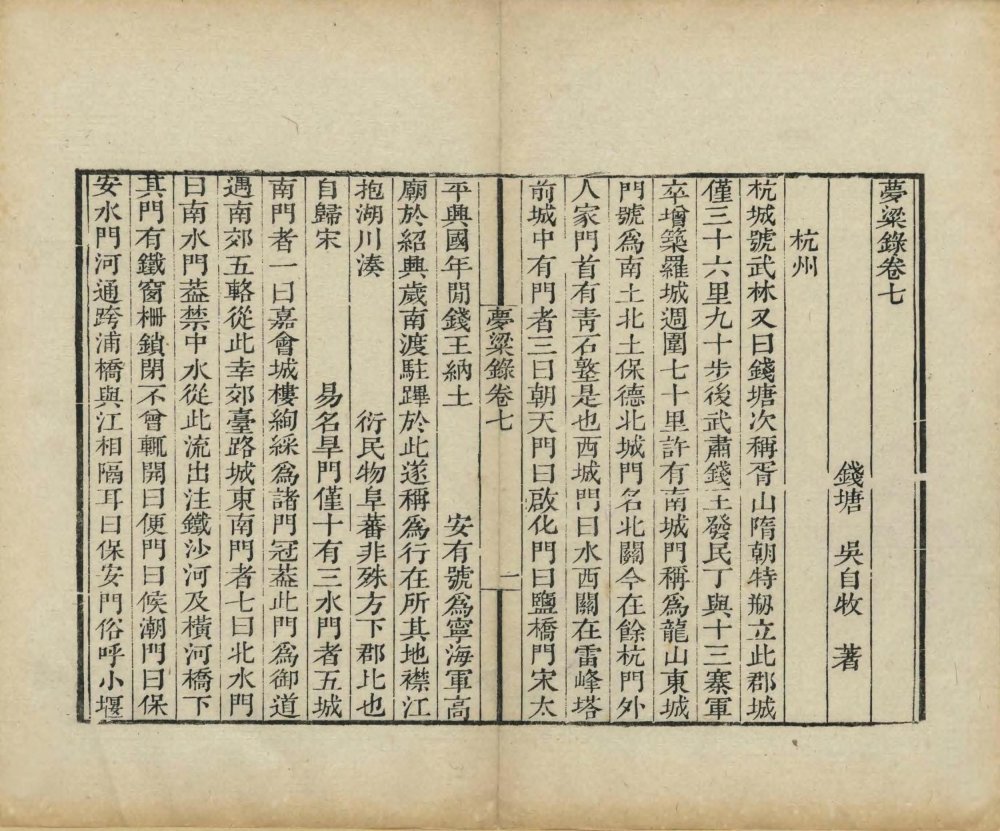 夢粱錄卷七
錢塘 吳自牧 著
杭州
杭城號武林又曰錢塘次稱胥山隋朝特刱立此郡城
僅三十六里九十步後武肅錢王發民丁與十三寨軍
卒增築羅城週圍七十里許有南城門稱為龍山東城
門號為南土北土保德北城門名北關今在餘杭門外
人家門首有青石墪是也西城門曰水西關在雷峰塔
前城中有門者三曰朝天門曰啟化門曰鹽橋門宋太
夢粱錄卷七 一
平興國年間錢王納土 安有號為寧海軍高
廟於紹興歲南渡駐蹕於此遂稱為行在所其地襟江
抱湖川湊 衍民物阜蕃非殊方下郡比也
自歸宋 易名旱門僅十有三水門者五城
南門者一曰嘉會城樓絢綵為諸門冠葢此門為御道
遇南郊五輅從此幸郊臺路城東南門者七曰北水門
曰南水門葢禁中水從此流出注鐵沙河及橫河橋下
其門有鐵窗柵鎖閉不曾輒開曰便門曰候潮門曰保
安水門河通跨浦橋與江相隔耳曰保安門俗呼小堰